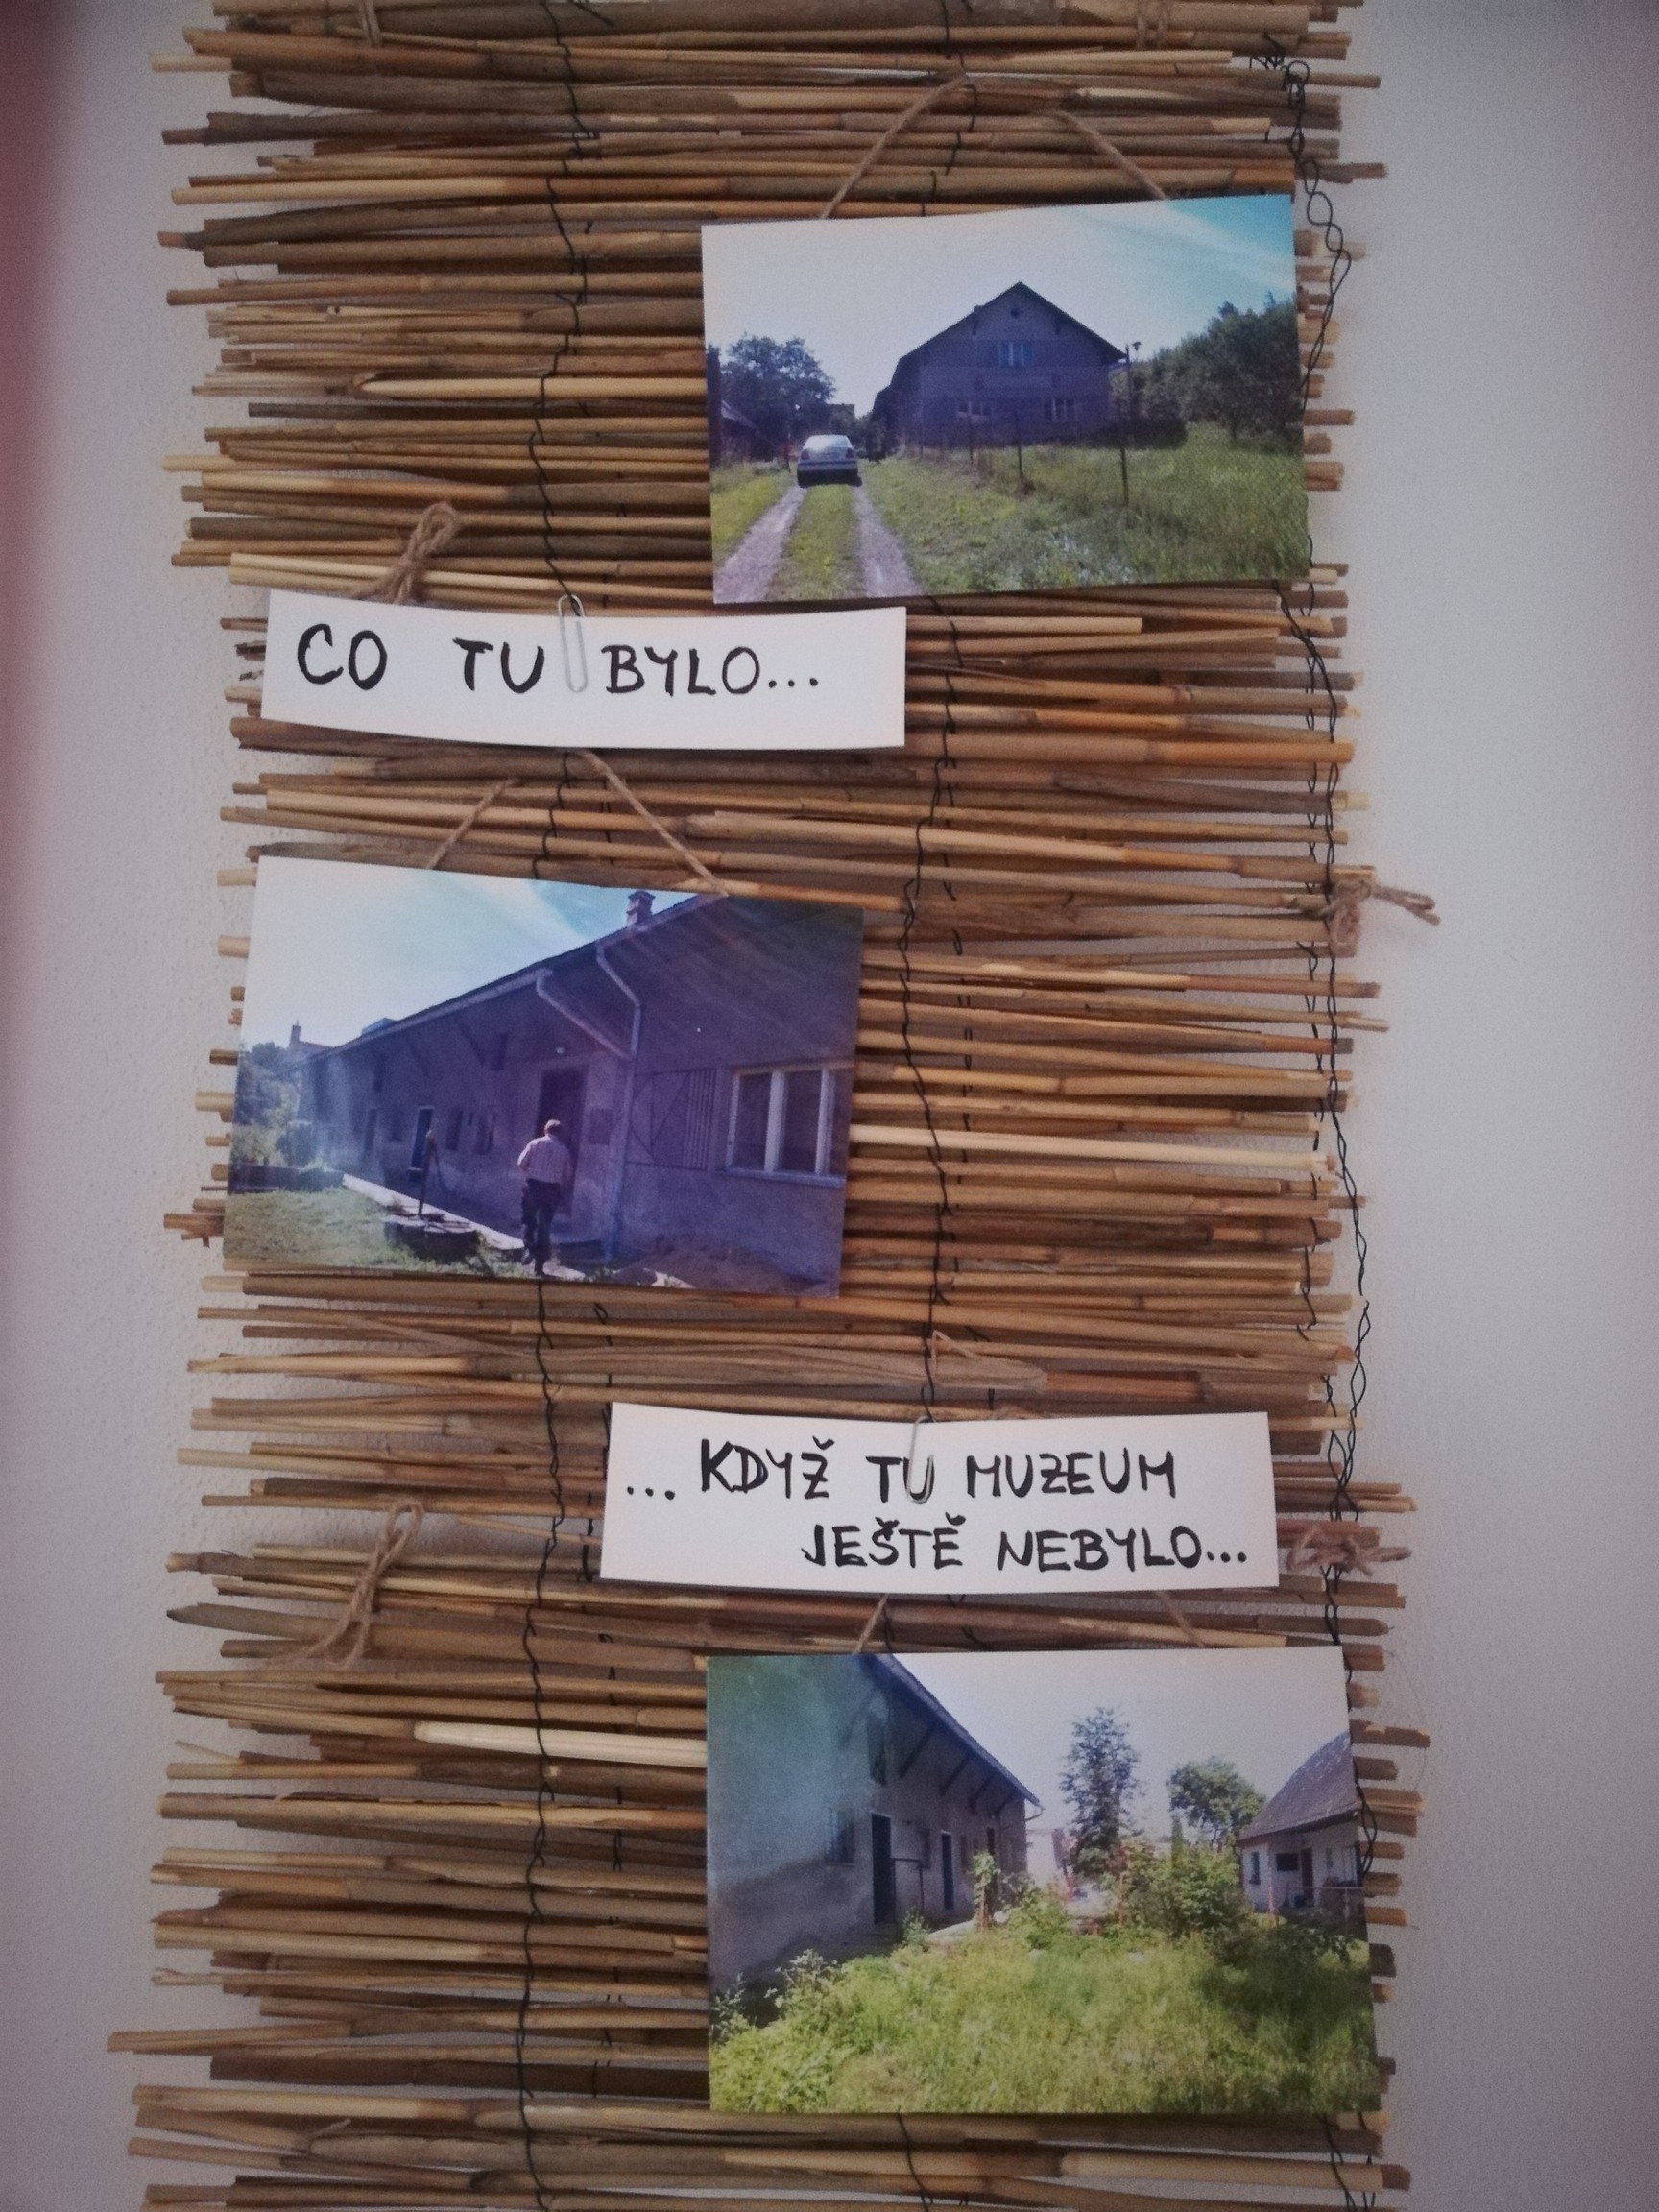 CO TU BYLO...
... KDYŽ TU MUZEUM
JEŠTĚ NEBYLO...